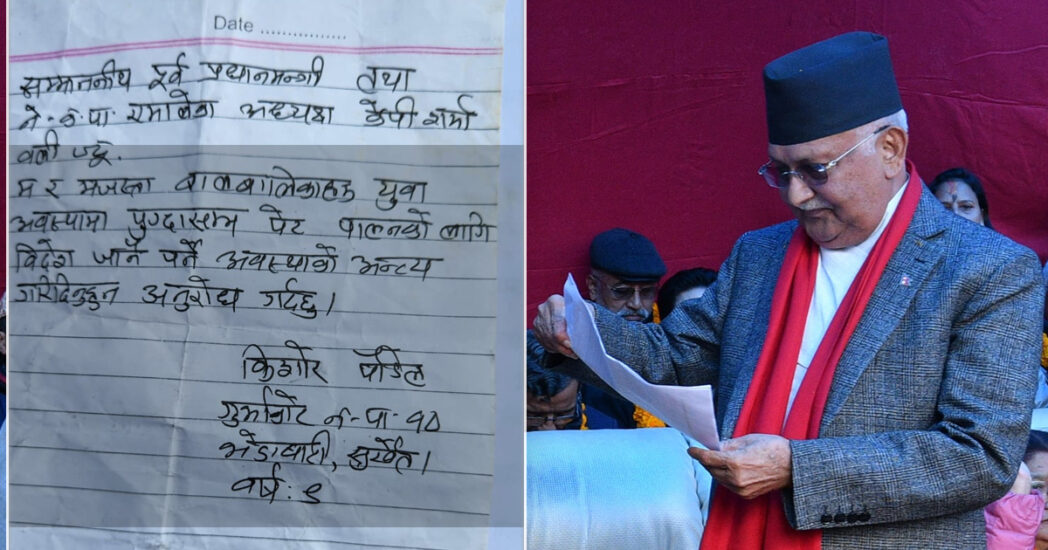 Date ................
सम्माननीय पूर्व प्रधानमन्त्री तथा
ने·क·पा· एमालेका अध्यक्ष केपी शर्मा
वली ज्यू.
म र मजस्ता बालबालिकाहरु युवा
अवस्थामा पुग्दासम्म पेट पाल्नको लागि
विदेश जानै पर्ने अवस्थाको अन्त्य
गरिदिनुहुन अनुरोध गर्दछु।
किशोर पौडेल
गुर्भाकोट न·पा· १०
सुर्खेत।
वर्ष: ९